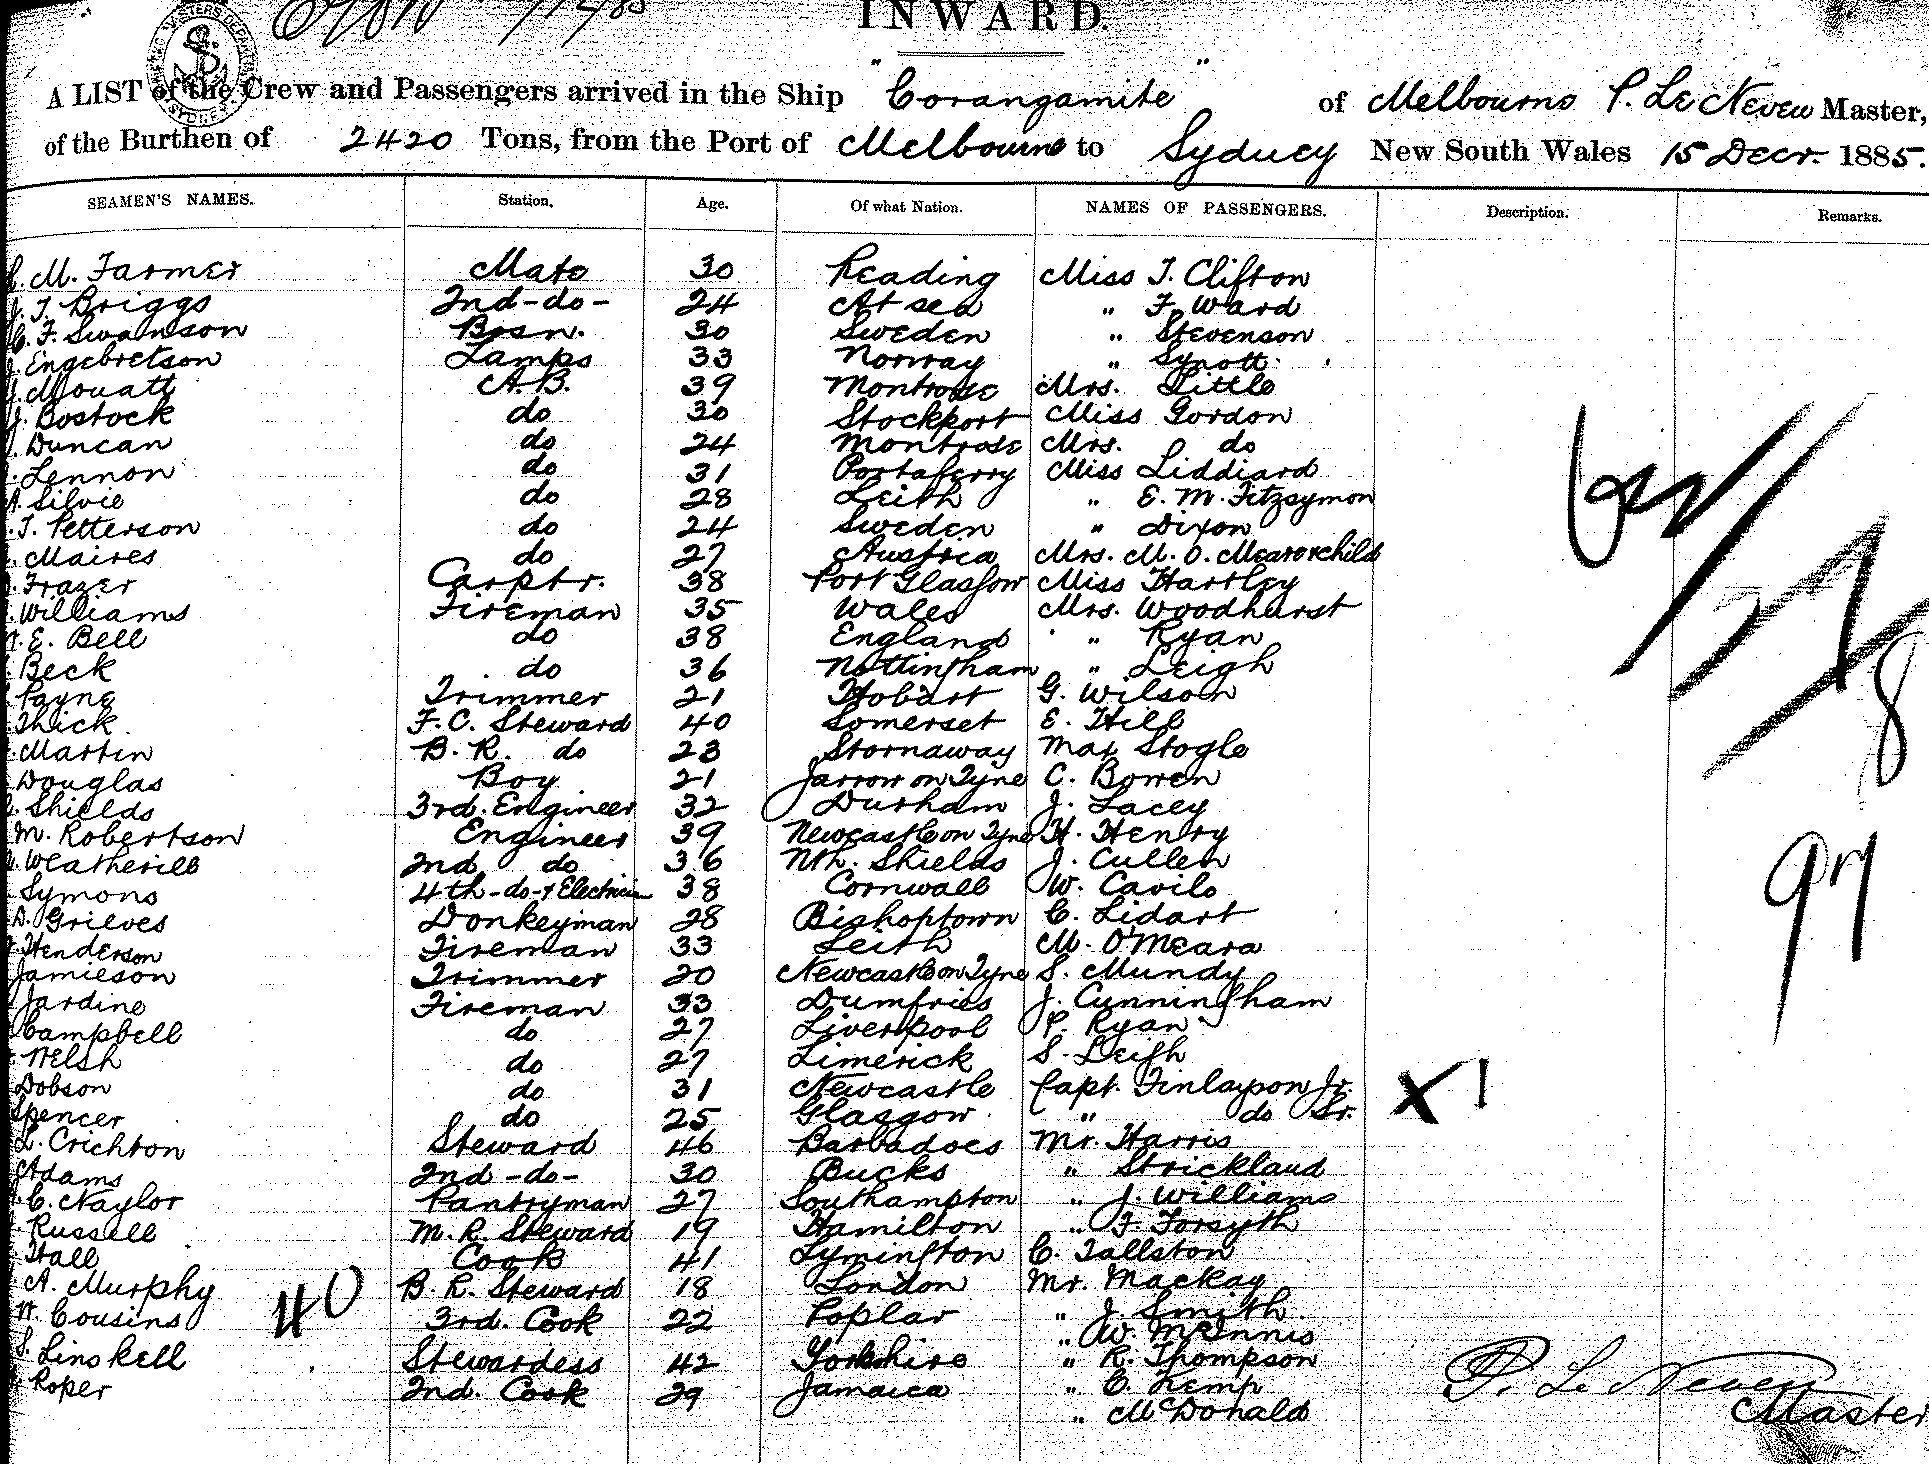 INWARD.
A LIST of the Crew and Passengers arrived in the Ship "Corangamite" of Melbourne P. Le Neveu Master,
of the Burthen of 2420 Tons, from the Port of Melbourne to Sydney New South Wales 15 Decr. 1885.
SEAMEN'S NAMES. Station. Age. Of what Nation. NAMES OF PASSENGERS. Description. Remarks.
M. Farmer Mate 30 Reading Miss T. Clifton
J. T. Briggs 2nd -do- 24 At sea " F. Ward
C. F. Swainson Bosn. 30 Sweden " Stevenson
Engebretson Lamps 33 Norway " Synott
J. Mouatt A.B. 39 Montrose Mrs. Little
J. Bostock do 30 Stockport Miss Gordon
Duncan do 24 Montrose Mrs. do
Lennon do 31 Portaferry Miss Liddiard
A. Silvie do 28 Leith " E. M. Fitzsymon
T. Petterson do 24 Sweden " Dixon
Maires do 27 Austria Mrs. M. O.
Frazer Carptr. 38 Port Glasgow Miss Hartley
Williams Fireman 35 Wales Mrs. Woodhurst
E. Bell do 38 England " Ryan
Beck do 36 Nottingham " Leigh
Payne Trimmer 21 Hobart G. Wilson
Thick F. C. Steward 40 Somerset E. Hill
Martin B. R. do 23 Stornaway Max Stogle
Douglas Boy 21 Jarrow on Tyne C. Bowen
Shields 3rd. Engineer 32 Durham J. Lacey
M. Robertson Engineer 39 Newcastle on Tyne H. Henry
Weatherill 2nd do 36 Nth. Shields J. Cullen
Symons 4th -do- & Electrician 38 Cornwall W. Cavilo
D. Grieves Donkeyman 28 Bishoptown C. Lidart
Henderson Fireman 33 Leith M. O'Meara
Jamieson Trimmer 20 Newcastle on Tyne S. Mundy
Jardine Fireman 33 Dumfries J. Cunningham
Campbell do 27 Liverpool P. Ryan
Welsh do 27 Limerick S. Leigh
Dobson do 31 Newcastle Capt. Finlayson Jr. X 1
Spencer do 25 Glasgow " do Sr.
L. Crichton Steward 46 Barbadoes Mr. Harris
Adams 2nd -do- 30 Bucks " Strickland
C. Naylor Pantryman 27 Southampton " J. Williams
Russell M. R. Steward 19 Hamilton " F. Forsyth
Hall Cook 41 Lymington C. Tallston
A. Murphy B. R. Steward 18 London Mr. Mackay
W. Cousins 40 3rd. Cook 22 Poplar " J. Smith
" W. McInnis
S. Linskell Stewardess 42 Yorkshire " R. Thompson
Roper 2nd. Cook 29 Jamaica " C. Kemp
" McDonald
P. Le Neveu
Master